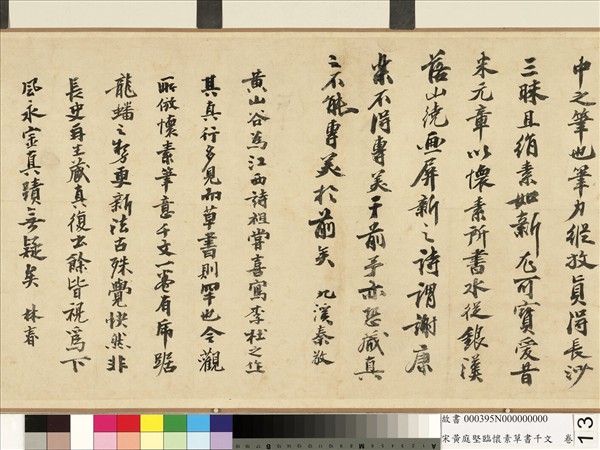 中之筆也筆力縱放真得長沙
三昧且絹素如新尤可寶愛昔
米元章以懷素所書水從銀漢
落山繞画屏新之詩謂謝康
樂不得專美于前予亦恐藏真
之不能專美於前矣 九溪秦敬
黄山谷為江西詩祖嘗喜寫李杜之作
其真行多見而草書則罕也今觀
所倣懷素筆意千文一卷有席踞
龍蟠之勢更新法古殊覺快然非
長史再生藏真復出餘皆視為下
風永宝真蹟無疑矣 林春
故書 000395N000000000
宋黃庭堅臨懷素草書千文 卷
13